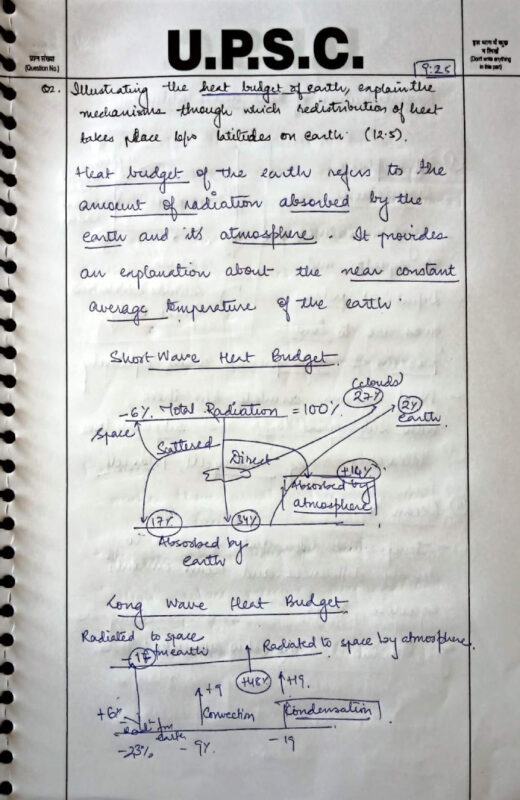 प्रश्न संख्या
(Question No.)
U.P.S.C.
इस भाग में कुछ
न लिखें
(Don't write anything
in this part)
9:25
Q2. Illustrating the heat budget of earth, explain the
mechanisms through which redistribution of heat
takes place b/w latitudes on earth. (12.5)
Heat budget of the earth refers to the
amount of radiation absorbed by the
earth and its atmosphere. It provides
an explanation about the near constant
average temperature of the earth.
Short Wave Heat Budget.
(clouds)
-6% Total Radiation = 100%
27%
2%
earth
Space
Scattered
Direct
+14%
Absorbed by
atmosphere
17%
34%
Absorbed by
earth
Long Wave Heat Budget
Radiated to space
from earth
Radiated to space by atmosphere
-17
+48%
+9
+19
+6%
Convection
Condensation
from
earth
-23%
-9%
-19